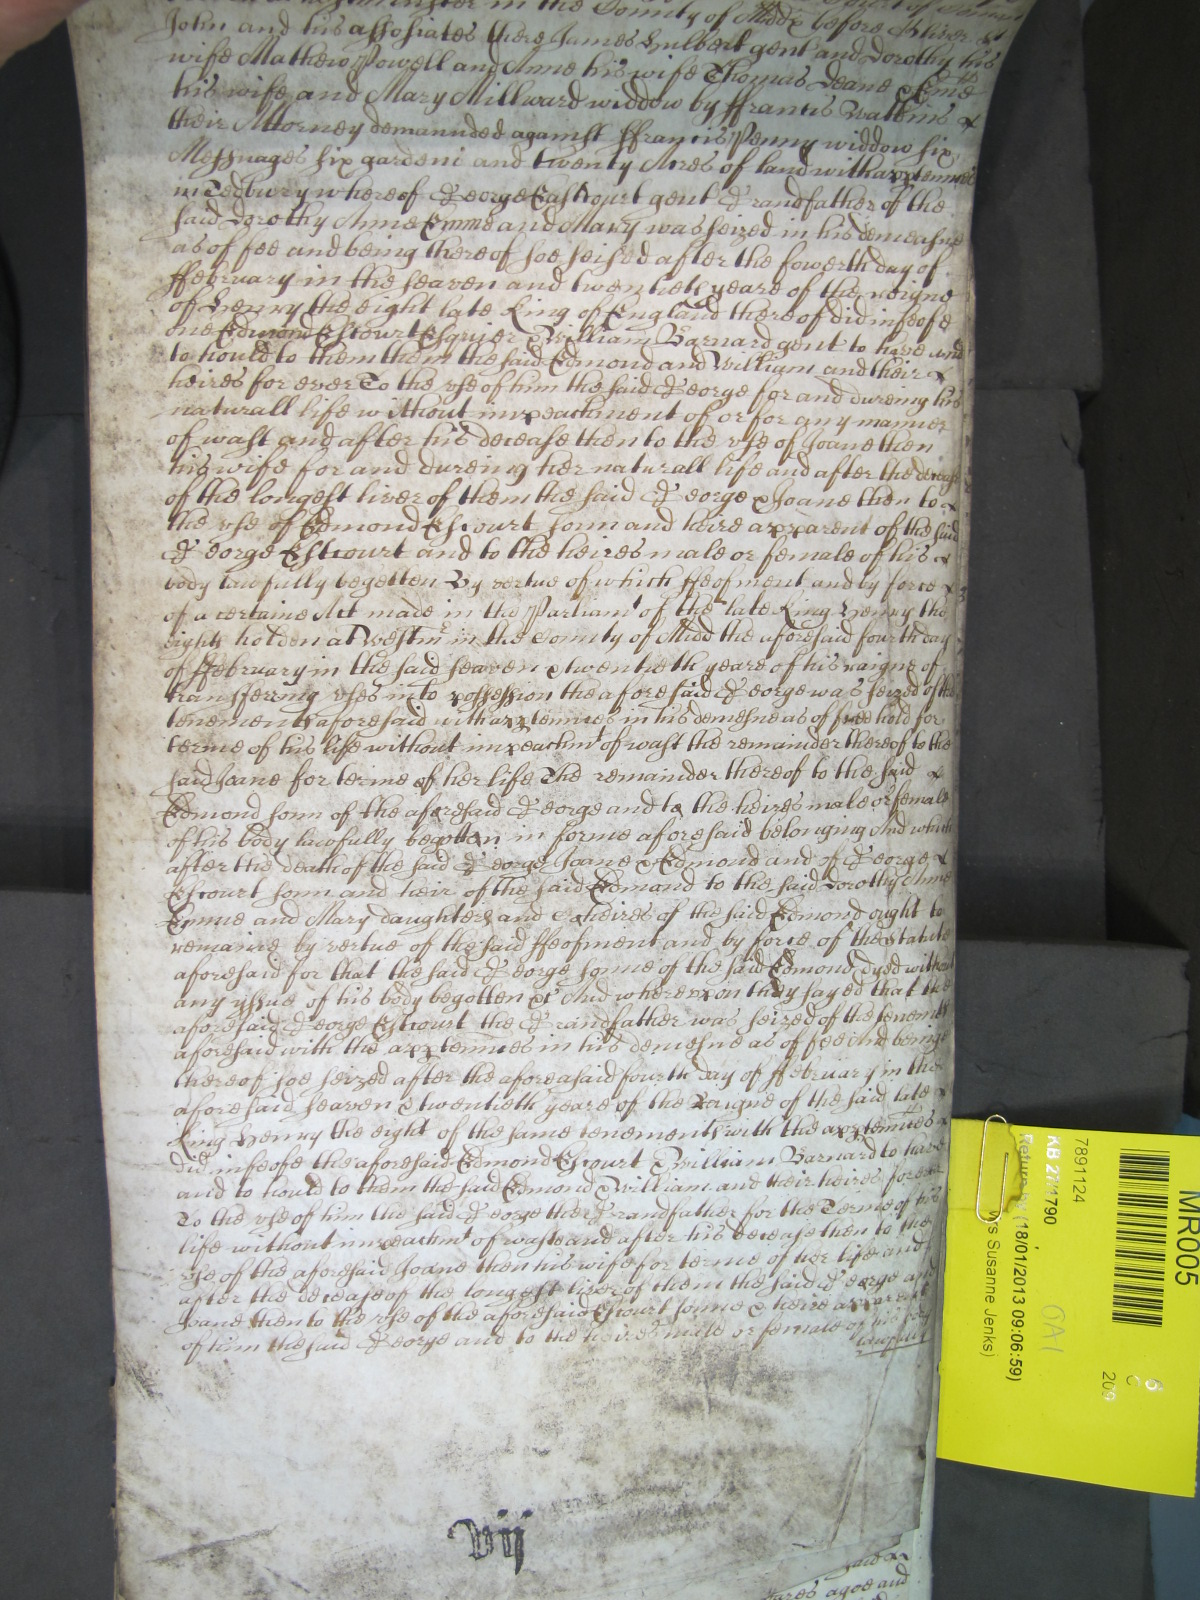 in the County of Midd before Oliver St
John and his assosiates there James Hulbert gent and Dorothy his
wife Mathew Powell and Anne his wife Thomas Deane & Eme
his wife and Mary Millward widdow by ffrancis Watkins &
their Attorney demannded against ffrancis Penny widdow six
Messuages six gardeni and twenty Acres of land with apptennces
in Tedbury whereof George Eastcourt gent Grandfather of the
said Dorothy Anne Emme and Mary was seized in his demeasne
as of fee and being thereof soe seised after the fowerth day of
ffebruary in the seaven and twentieth yeare of the reigne
of Henry the eight late King of England thereof did infeofe
one Edmond Estcourt Esquier & William Barnard gent to have and
to hould to them them the said Edmond and William and their &
heires for ever To the vse of him the said George for and dureing his
naturall life without impeachment of or for any manner
of wast and after his decease then to the vse of Joane then
his wife for and dureing her naturall life and after the decease
of the longest liver of them the said George & Joane then to &
the vse of Edmond Estcourt sonn and heire apparent of the said
George Estcourt and to the heires male or female of his &
body lawfully begotten By vertue of which ffeofment and by force &
of a certaine Act made in the Parliamt of the late King Henry the
eight holden at Westmr in the County of Midd the aforesaid fourth day
of ffebruary in the said seaven & twentieth yeare of his raigne of
transferring vses into possession the aforesaid George was seized of the
tenements aforesaid with apptennces in his demesne as of free hold for
terme of his life without impeachmt of wast the remainder thereof to the
said Joane for terme of her life The remainder thereof to the said &
Edmond sonn of the aforesaid George and to the heires male or female
of his body lawfully begotten in forme aforesaid belonging And which
after the death of the said George Joane & Edmond and of George &
Estcourt sonn and heir of the said Edmond to the said Dorothy Anne
Emme and Mary daughters and Coheires of the said Edmond ought to
remaine by vertue of the said ffeofment and by force of the statute
aforesaid for that the said George sonne of the said Edmond dyed without
any yssue of his body begotten &c And whereupon they sayed that the
aforesaid George Estcourt the Grandfather was seized of the tenemts
aforesaid with the apptennces in his demesne as of fee And being
thereof soe seized after the aforeasaid fourth day of ffebruary in the
aforesaid seaven & twentieth yeare of the Raigne of the said late &
King Henry the eight of the same tenements with the apptennces &
did infeofe the aforesaid Edmond Estcourt & William Barnard to have
and to hould to them the said Edmond & William and their heires forever
To the vse of him the said George the Grandfather for the Terme of his
life without impeachmt of waste and after his decease then to the
vse of the aforesaid Joane then his wife for terme of her life and
after the decease of the longest liver of them the said George and
Joane then to the vse of the aforesaid Estcourt sonne & heire apparent
of him the said George and to the heires male or female of his body
lawfully
vij
said &
yeares agoe and
MR005
7891124
KB 27/1790
Return by (18/01/2013 09:06:59)
Susanne Jenks)
OA1
6
C
209